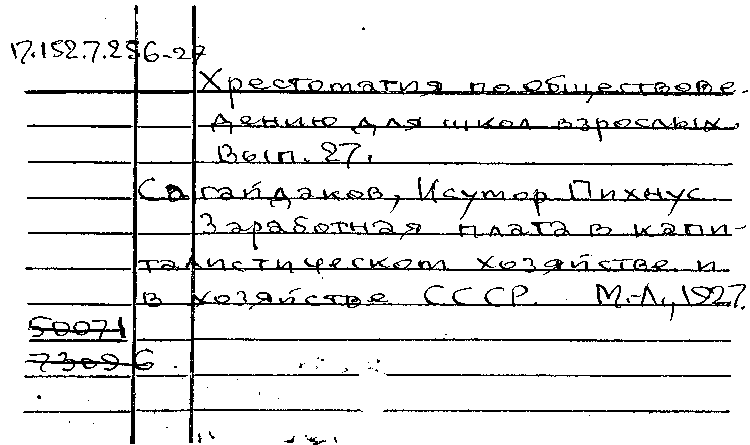 П.152.7.256-27
Хрестоматия по обществове-
дению для школ взрослых.
Вып. 27.
Сагайдаков, Исутор Пихнус
Заработная плата в капи-
талистическом хозяйстве и
в хозяйстве СССР. М.-Л., 1927.
50071
73096